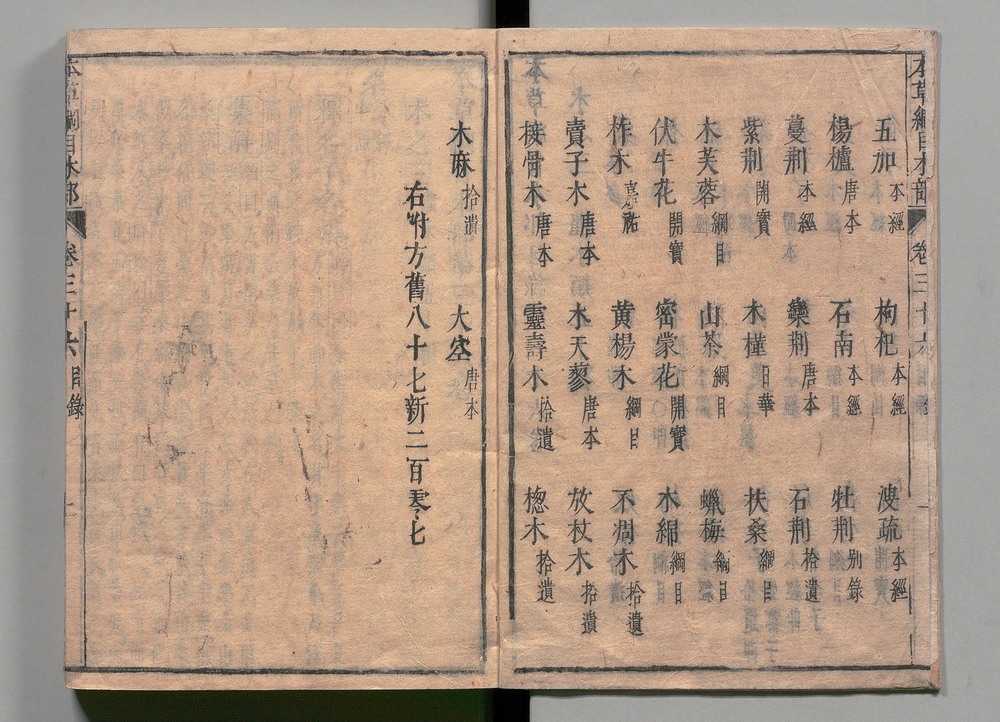 本草綱目木部 卷三十六
五加 本經 枸杞 本經 溲疏 本經
楊櫨 唐本 石南 本經 牡荆 別錄
蔓荆 本經 欒荆 唐本 石荆 拾遺
紫荆 開寶 木槿 日華 扶桑 綱目
木芙蓉 綱目 山茶 綱目 蠟梅 綱目
伏牛花 開寶 密蒙花 開寶 木綿 綱目
柞木 嘉祐 黃楊木 綱目 不凋木 拾遺
賣子木 唐本 木天蓼 唐本 放杖木 拾遺
接骨木 唐本 靈壽木 拾遺 楤木 拾遺
木麻 拾遺 大空 唐本
右附方舊八十七新二百零七
本草綱目木部 卷三十六目錄 二